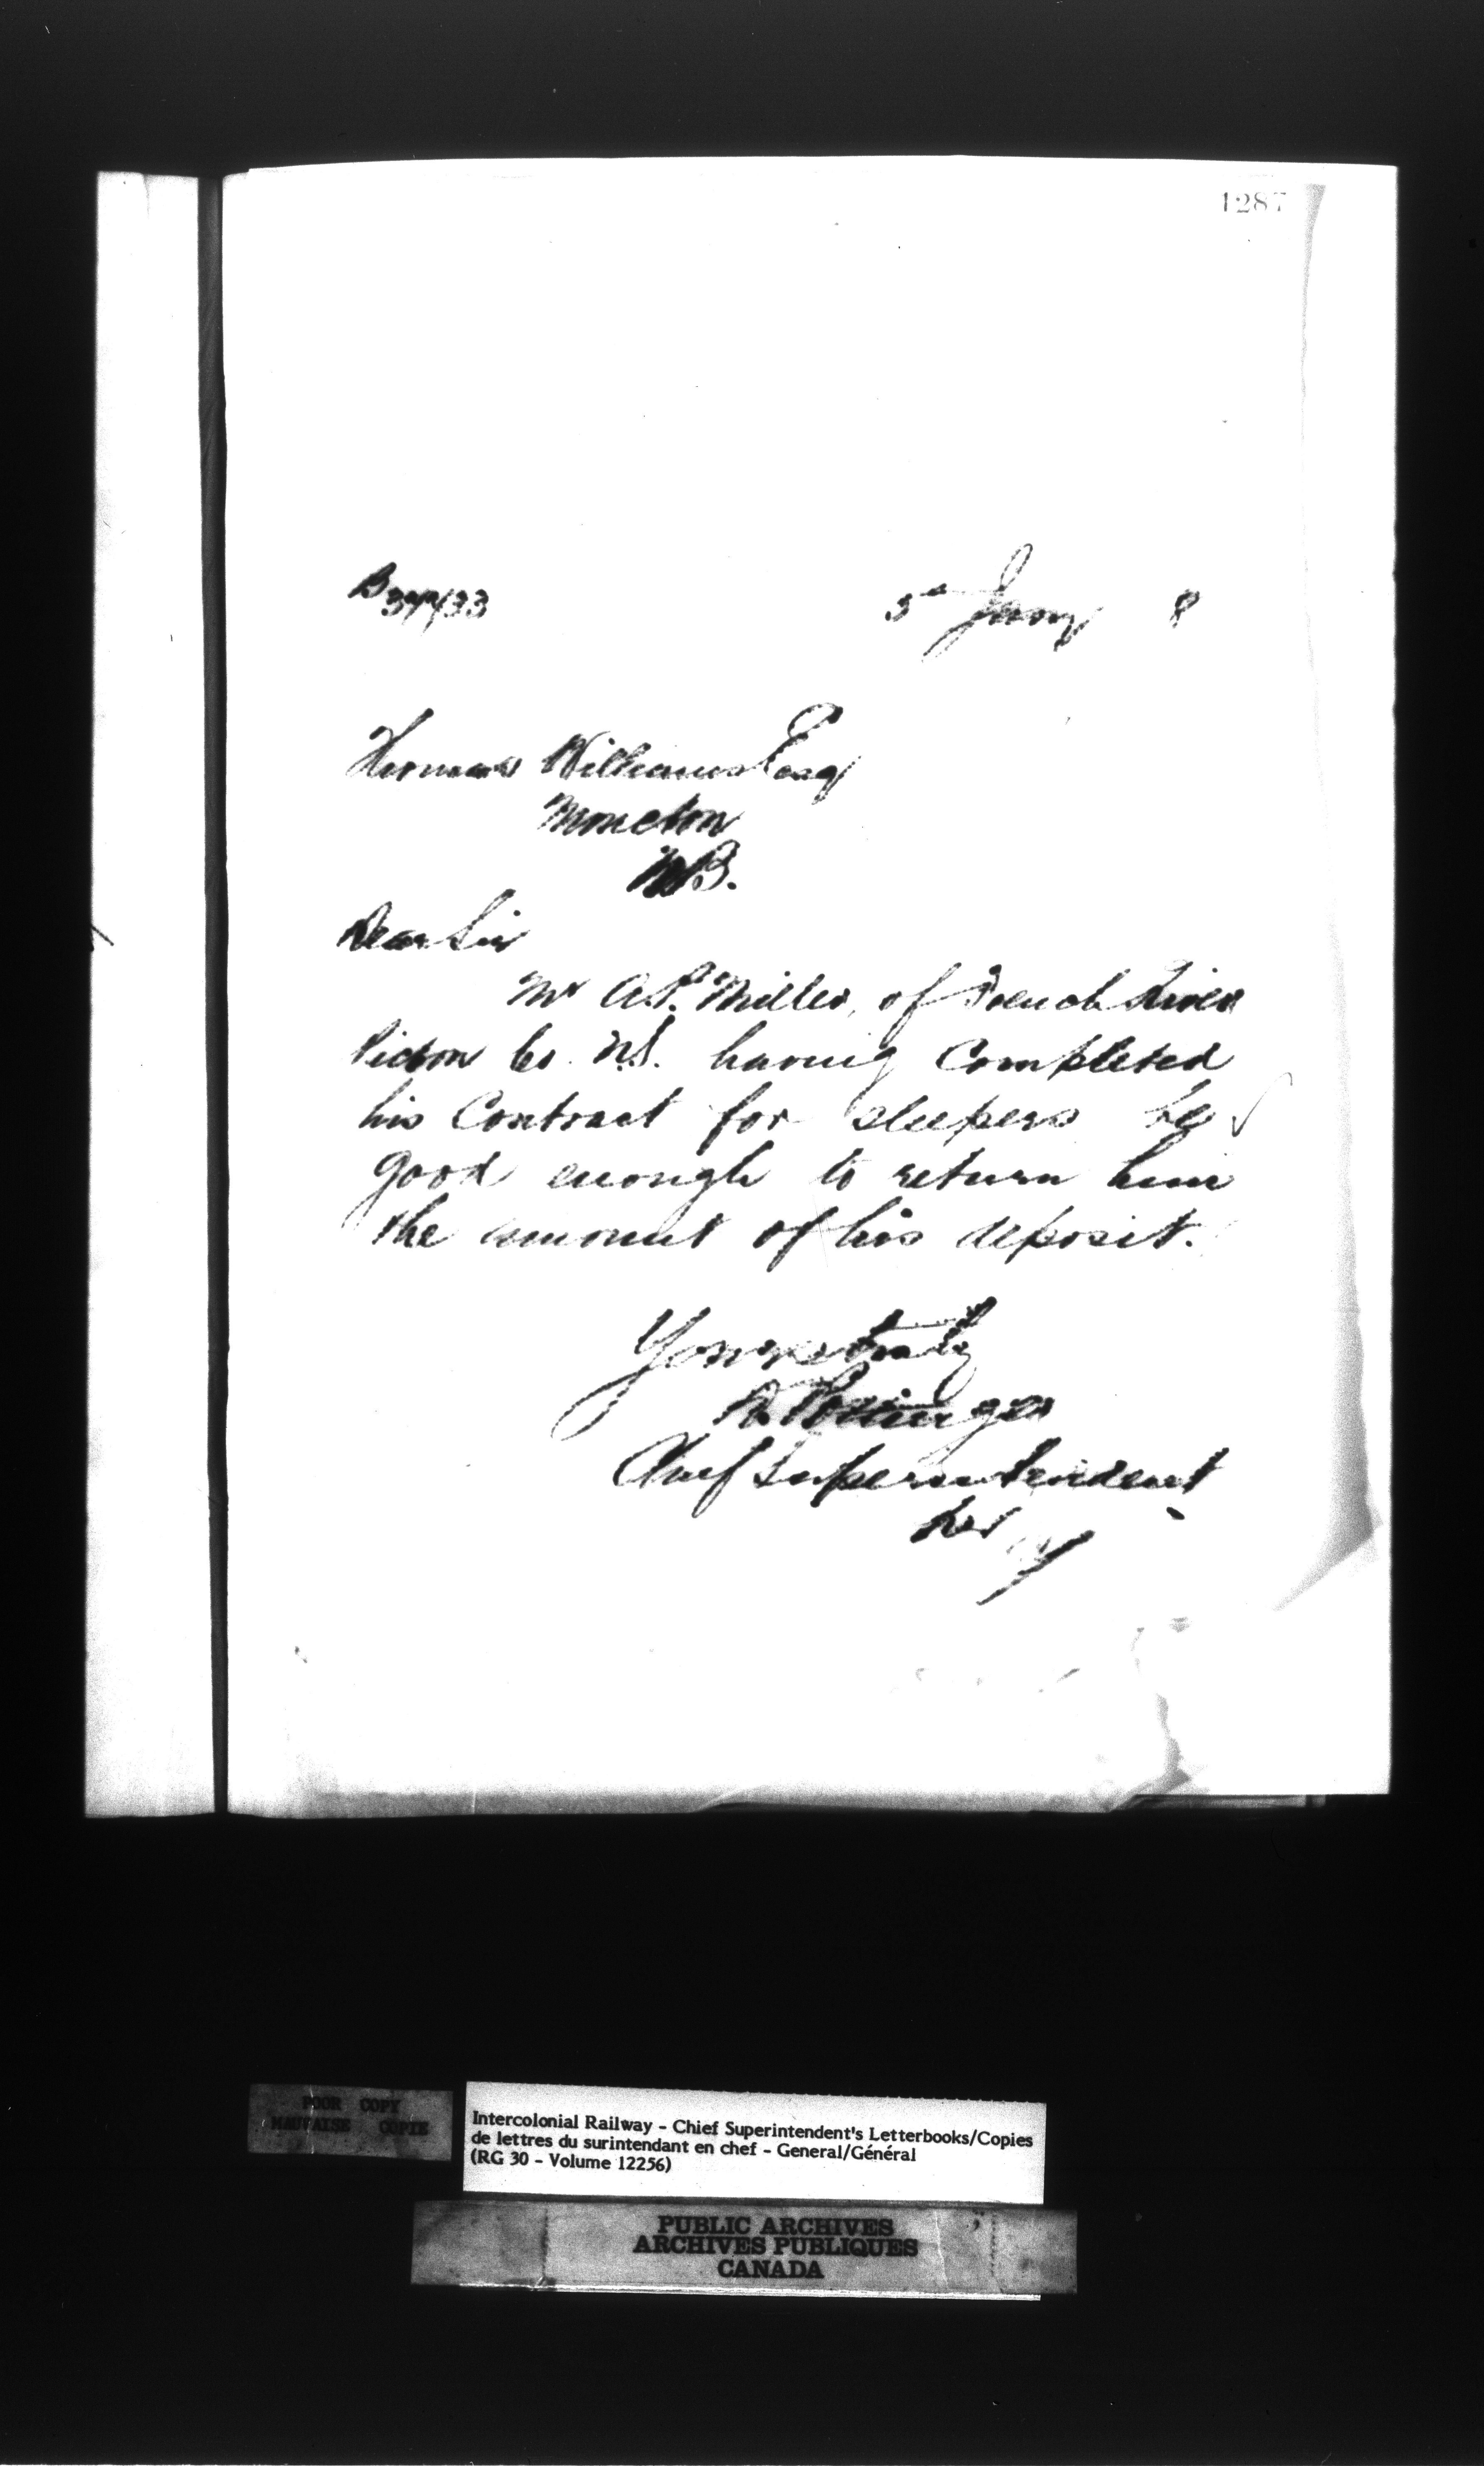 1287
5th Jany 8
Thomas Williams Esq
Moncton
N.B.
Dear Sir
Mr A.P. Miller, of French River
Pictou Co. N.S. having Completed
his Contract for sleepers be
good enough to return him
the amount of his deposit.
Yours truly
D Pottinger
Chief Superintendent
POOR COPY
MAUVAISE COPIE
Intercolonial Railway - Chief Superintendent's Letterbooks/Copies
de lettres du surintendant en chef - General/Général
(RG 30 - Volume 12256)
PUBLIC ARCHIVES
ARCHIVES PUBLIQUES
CANADA